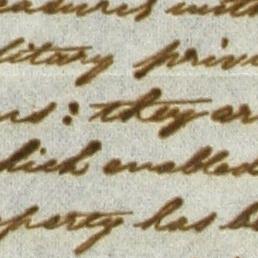 easures with
litary priv
ns: they ar
hich enabled
operty has be